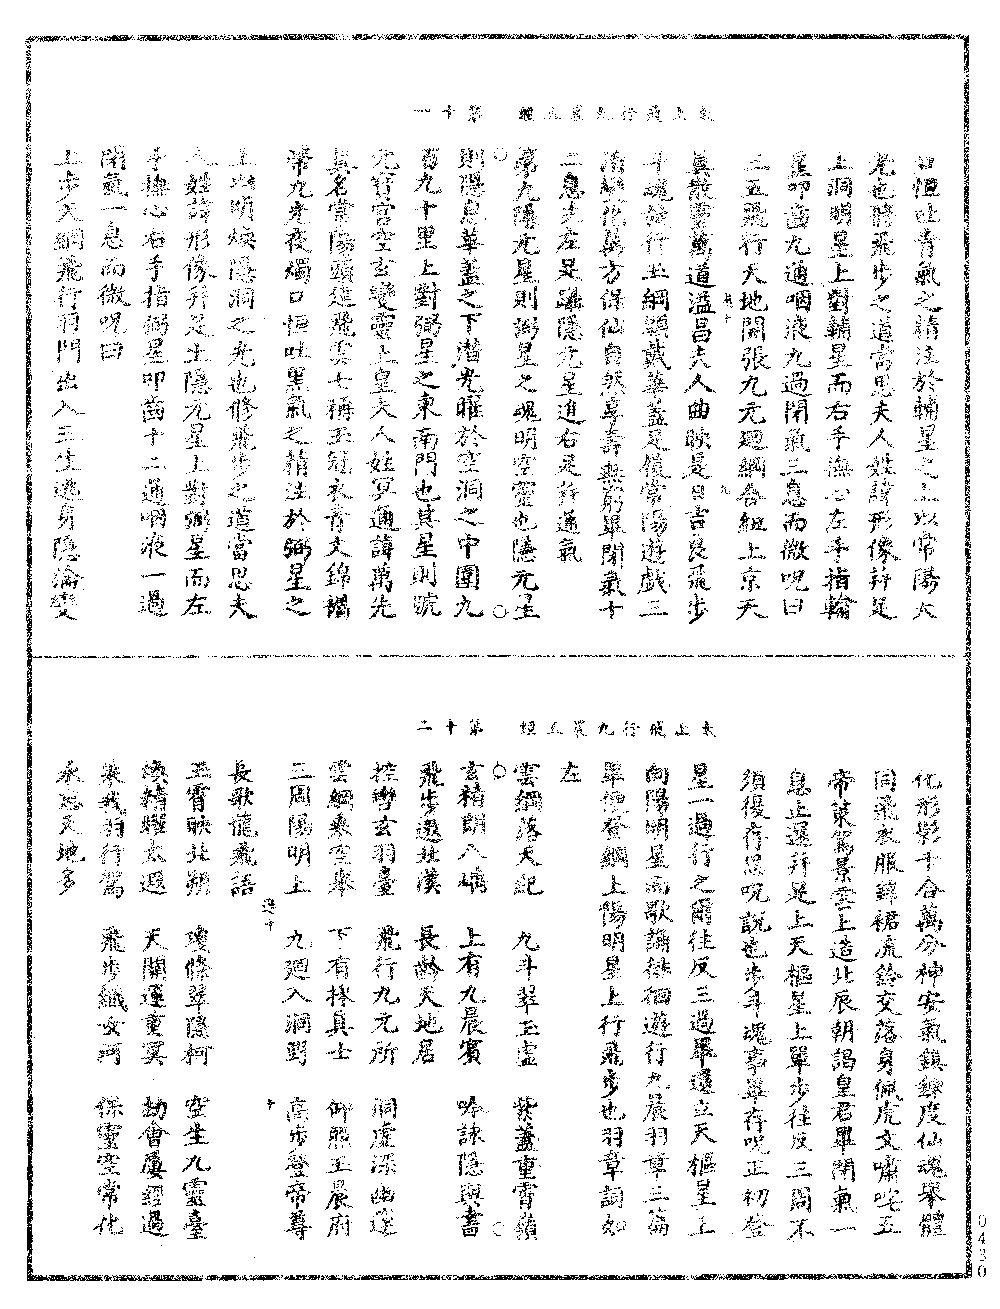 太上飛行九晨玉經　第十一
口恒吐青氣之精注於輔星之上以常陽大
光也將飛步之道當思夫人姓諱形像并足
上洞明星上對輔星而右手撫心左手指輔
星叩齒九通咽液九過閉氣三息而微呪曰
二五飛行天地開張九元迴綱各紐上京天
真散靈萬道溢昌夫人曲映是日吉良飛步
十魂飛行玉綱頭戴華蓋足履常陽遊戲三
清變化萬方保仙自然享壽無窮畢閉氣十
二息先左足躡隱元星進右足并通氣
第九隱元星則弼星之魂明空靈也隱元星
則隱息華蓋之下潛光曜於空洞之中圍九
百九十里上對弼星之東南門也其星則號
元寳宮空玄變靈上皇夫人姓冥通諱萬先
真名常陽頭建飛雲七稱玉冠衣青文錦襡
帶九光夜燭口恒吐黑氣之精注於弼星之
上以明煥隱洞之光也修飛步之道當思夫
人姓諱形像并足土隱元星上對弼星而左
手撫心右手指弼星叩齒十二通咽液一過
閉氣一息而微呪曰
上步天綱飛行羽門出入三生遁身隱淪變
太上飛行九晨玉經　第十二
化形影千合萬分神安氣鎮錬度仙魂舉體
同飛衣服錦裙流鈴交落身佩虎文嘯咤五
帝策駕景雲上造北辰朝謁皇君畢閉氣一
息止還并足上天樞星上單步往反三周不
須復存思呪說也步斗魂事畢存呪正初登
星一過行之爾往反三過畢還立天樞星上
向陽明星而歌誦徘徊遊行九晨羽章三篇
畢便登綱上陽明星上行飛步也羽章詞如
左
雲綱落天紀　九斗翠玉虛　紫蓋重霄嶺
玄精朗八嵎　上有九晨賓　吟詠隱與書
飛步遨北漢　長齡天地居
控轡玄羽臺　飛行九元所　洞虛深幽邃
雲綱乘空舉　下有採真士　仰照玉晨府
三周陽明上　九迴入洞野　高步登帝尊
長歌龍飛語
玉霄映北朔　瓊條翠隱柯　空生九靈臺
煥精曜太遐　天關運重冥　劫會屢經過
乘我羽行駕　飛步織女河　保靈空常化
永忘天地多
0430